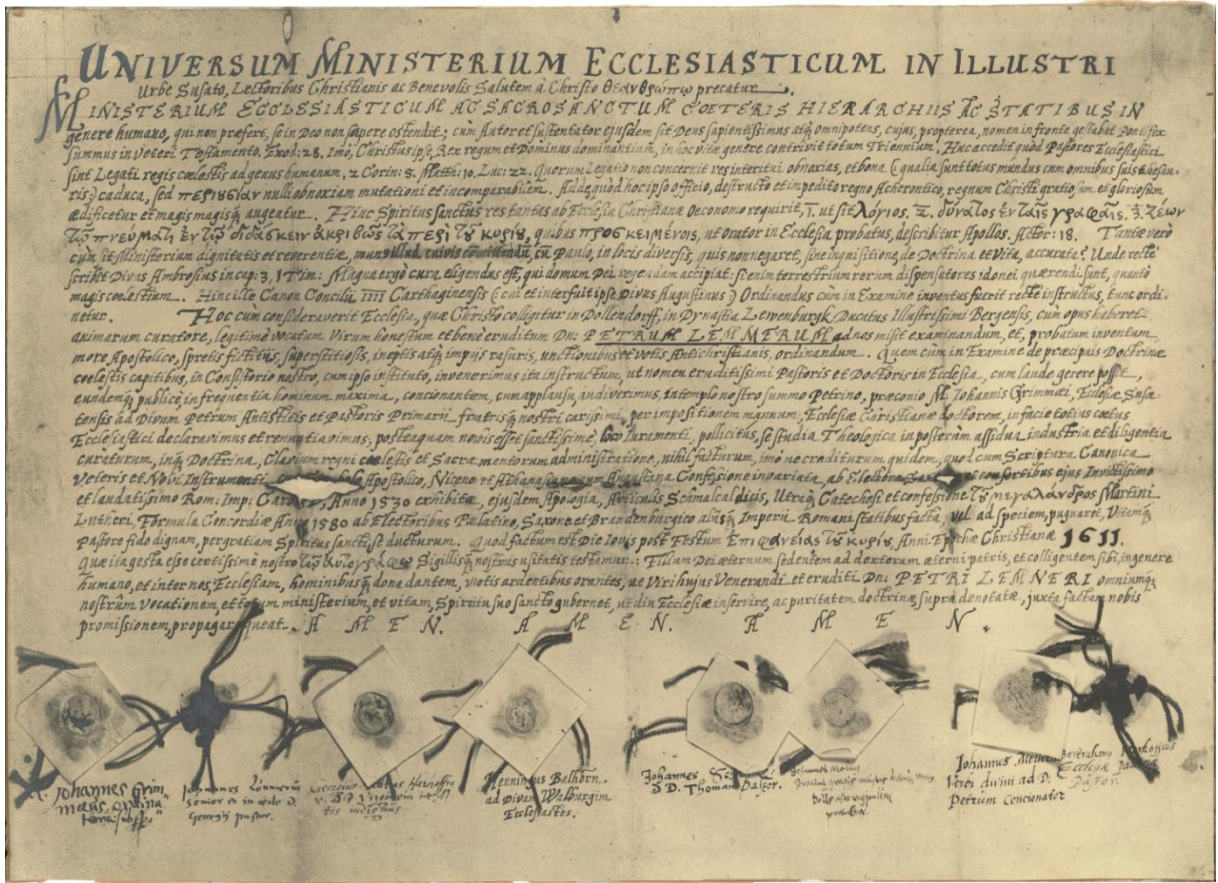 UNIVERSUM MINISTERIUM ECCLESIASTICUM IN ILLUSTRI
Urbe Susato, Lectoribus Christianis ac Benevolis Salutem à Christo θεανθρώπῳ precatur.
MINISTERIUM ECCLESIASTICUM AC SACROSANCTUM CŒTERIS HIERARCHIIS AC STATIBUS IN
genere humano, qui non præfert, se in Deo non sapere ostendit; cùm Autor et sustentator ejusdem sit Deus sapientissimus atq; omnipotens, cujus, propterea, nomen in fronte gestabat Pontifex
summus in Veteri Testamento. Exod: 28. Imò, Christus ipse, Rex regum et Dominus dominantium, in hoc vitæ genere contrivit totum Triennium. Huc accedit quod Pastores Ecclesiastici
sint Legati regis cœlestis ad genus humanum, 2 Corin: 5. Matth: 10. Luc: 22. Quorum Legatio non concernit res interitui obnoxias, et bona (: qualia sunt totus mundus cum omnibus suis thesau-
ris :) caduca, sed περιουσίαν nulli obnoxiam mutationi et incomparabilem. Adde, quòd hoc ipso officio, destructo et impedito regno Acherontico, regnum Christi gratiosum et gloriosum
ædificetur et magis magisq; augeatur. Hinc Spiritus sanctus res tantas ab Ecclesiæ Christianæ Oeconomo requirit, 1. ut sit λόγιος. 2. δύνατος ἐν ταῖς γραφαῖς. 3. ζέων
τῷ πνεύματι ἐν τῷ διδάσκειν ἀκριβῶς τὰ περὶ τοῦ κυρίου, quibus προσκειμένοις, ut orator in Ecclesia probatus, describitur Apollos. Actor: 18. Tantæ verò
cum sit Ministerium dignitatis et reverentiæ, illud cuivis cum Paulo, in locis diversis, quis non negaret, sine inquisitione, de Doctrina et Vita, accurata? Unde rectè
scribit Divus Ambrosius in cap: 3. 1 Tim: Magna ergò cura, eligendus est, qui domum Dei regendam accipiat: si enim terrestrium rerum dispensatores idonei quærendi sunt, quantò
magis cœlestium. Hinc ille Canon Concilii IIII Carthaginensis (: cui et interfuit ipse Divus Augustinus :) Ordinandus cùm in Examine inventus fuerit rectè instructus, tunc ordi-
netur. Hoc cum consideraverit Ecclesia, quæ Christo colligitur in Dollendorff, in Dynastia Lewenburgk Ducatus Illustrissimi Bergensis, cum opus haberet
animarum curatore, legitimè vocatum Virum honestum et benè eruditum Dn: PETRUM LEMMERUM ad nos misit examinandum, et, probatum inventum,
more Apostolico, spretis fictitiis, superstitiosis, ineptis atq; impijs rasuris, unctionibus et votis Antichristianis, ordinandum. Quem cùm in Examine de præcipuis Doctrinæ
coelestis capitibus, in Consistorio nostro, cum ipso instituto, invenerimus ita instructum, ut nomen eruditissimi Pastoris et Doctoris in Ecclesia, cum laude gerere possit,
eundemq; publicè, in frequentia hominum maxima, concionantem, cum applausu audiverimus, in templo nostro summo Petrino, præconio M. Johannis Grimmæi, Ecclesiæ Susa-
tensis ad Divum Petrum Antistitis et Pastoris Primarii, fratrisq; nostri carissimi, per impositionem manuum, Ecclesiæ Christianæ doctorem, in facie totius cœtus
Ecclesiastici declaravimus et renuntiavimus; posteaquam nobis esset sanctissimè, loco Juramenti, pollicitus, se studia Theologica in posterùm assidua industria et diligentia
curaturum, inq; Doctrina, Clavium regni cœlestis et Sacramentorum administratione, nihil facturum, imò ne crediturum quidem, quod cum Scriptura Canonica
Veteris et Novi Instrumenti Apostolico, Niceno et Augustana Confessione invariata, ab Electore et consortibus ejus Invictissimo
et laudatissimo Rom: Imp: Anno 1530 exhibita, ejusdem Apologia, Articulis Schmalcaldicis, Utraq; Catechesi et confessione τοῦ μεγαλάνδρος Martini
Lutheri, Formula Concordiæ 1580 ab Electoribus Palatino, Saxone et Brandenburgico aliisq; Imperii Romani statibus facta, vel ad speciem, pugnaret, Vitamq;
Pastore fido dignam, per gratiam Spiritus sancti se ducturum. Quod factum est Die Jovis post Festum Ἐπιφανείας τοῦ κυρίου, Anni Epochæ Christianæ 1611.
Quæ ita gesta esse certissimè nostro αὐτογράφῳ Sigillisq; nostris usitatis testamur: Filium Dei æternum sedentem ad dexteram æterni patris, et colligentem sibi, in genere
humano, et inter nos, Ecclesiam, hominibusq; dona dantem, votis ardentibus orantes, ut Viri hujus Venerandi et eruditi Dn: PETRI LEMNERI omniumq;
nostrûm vocationem, et totum ministerium, et vitam, Spiritu suo sancto gubernet, ut diu Ecclesiæ inservire, ac puritatem doctrinæ, supra denotatæ, juxta factam nobis
promissionem, propagare queat. AMEN. AMEN. AMEN.
Johannes Grim-
mæus
Johannes
Senior et in æde D.
Georgij pastor.
Henningus Balhorn
ad Divam Walburgim
Ecclesiastes.
Johannes
D D. Thomam Pastor.
Johannes
Verbi divini ad D.
Petrum Concionator
Ecclesiæ
Pastor